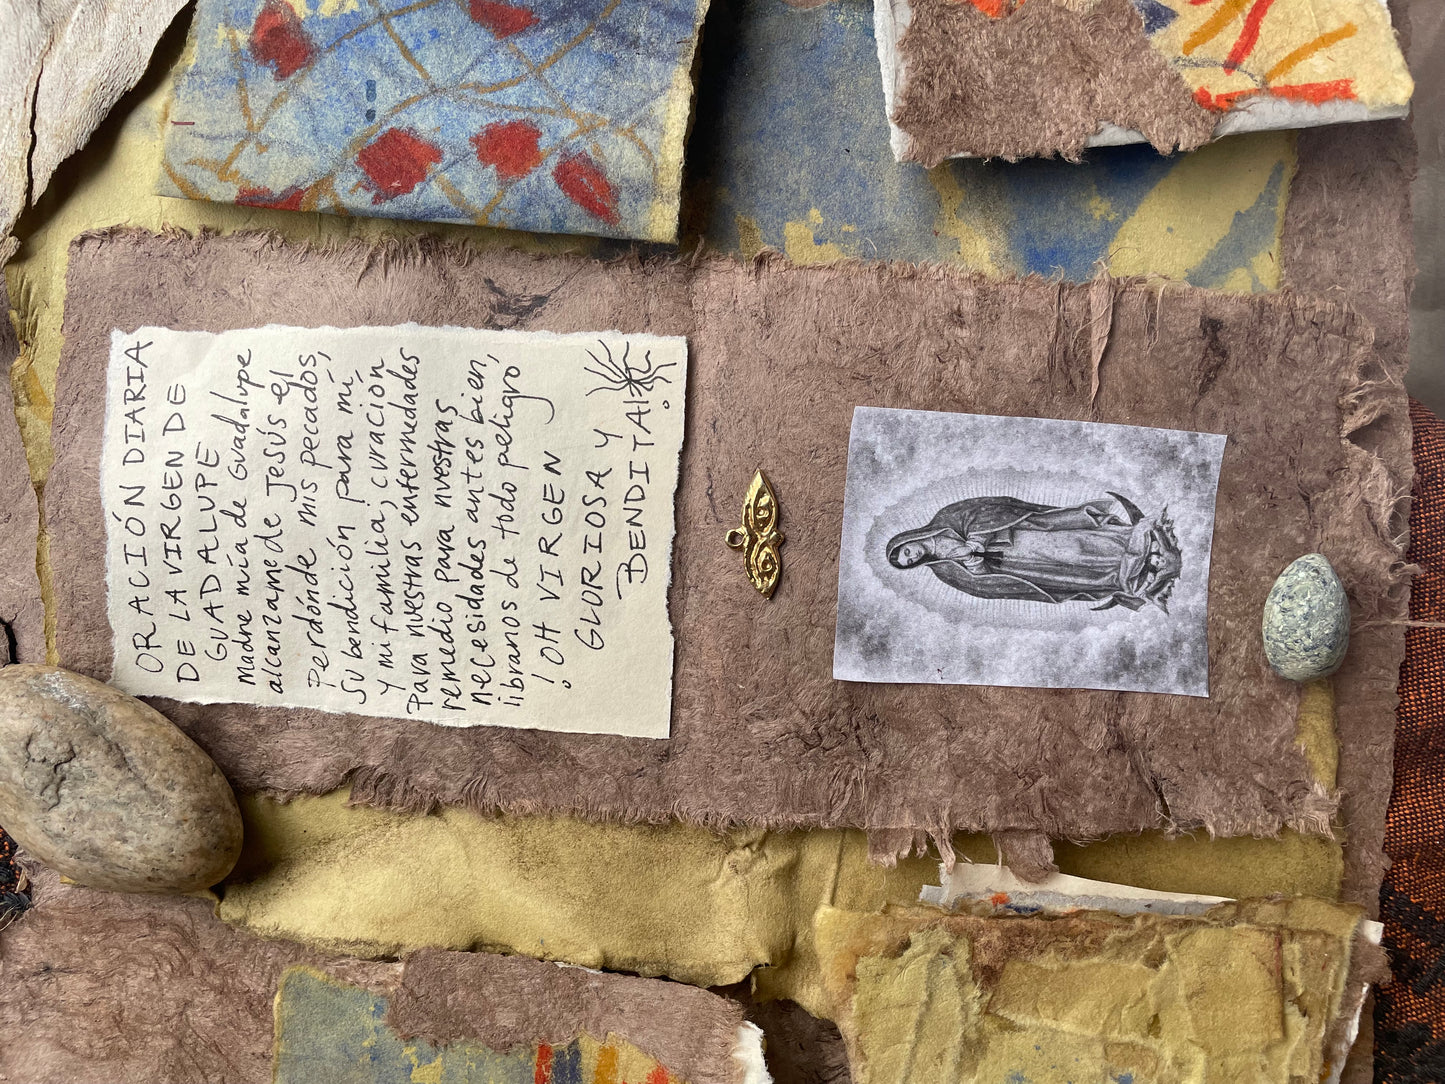 ORACIÓN DIARIA
DE LA VIRGEN DE
GUADALUPE
Madre mía de Guadalupe
alcanzame de Jesús el
perdónde mis pecados,
su bendición para mí,
y mi familia, curación
para nuestras enfermedades
remedio para nuestras
necesidades antes bien,
líbranos de todo peligro
!OH VIRGEN
GLORIOSA Y
BENDITA!